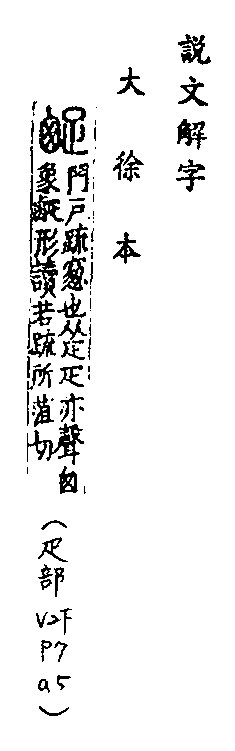 説文解字
大徐本
𤴙門戶疏窻也从疋疋亦聲囪
象𤕟形讀若疏所菹切
(疋部V2下P7a5)